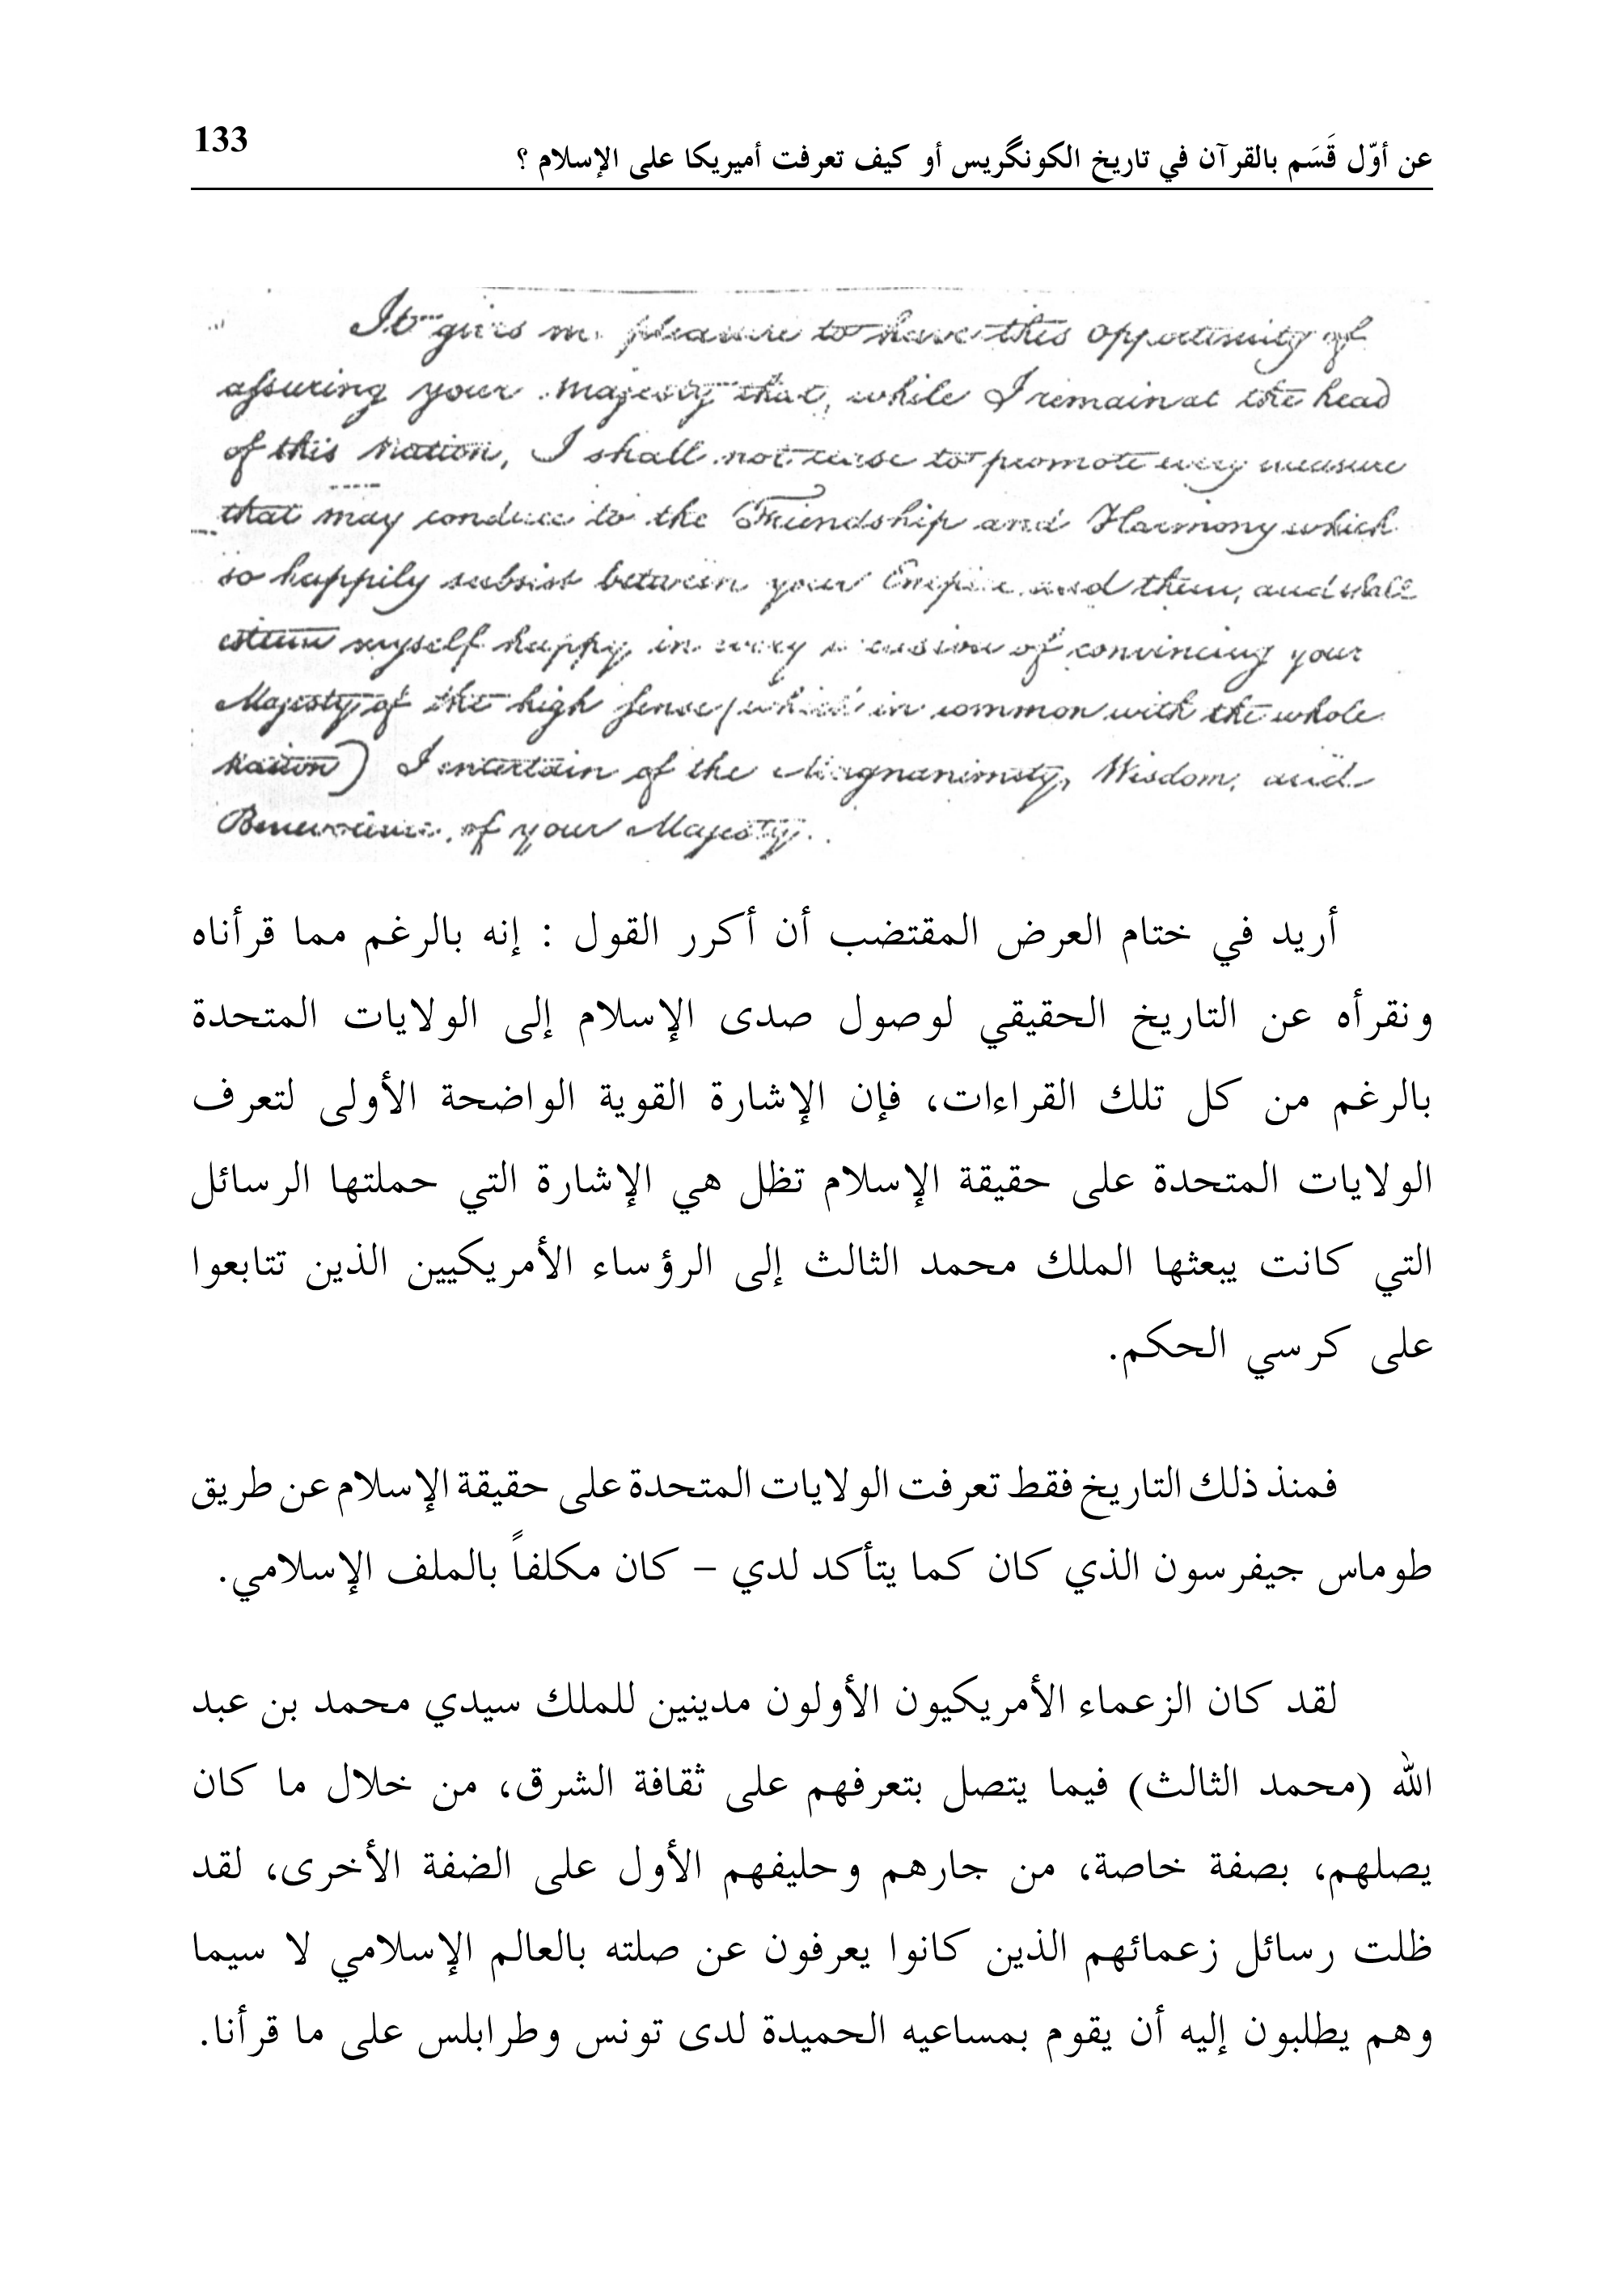 عن أوّل قَسَم بالقرآن في تاريخ الكونگريس أو كيف تعرفت أميريكا على الإسلام ؟ 133
It gives me pleasure to have this opportunity of
assuring your Majesty that, while I remain at the head
of this nation, I shall not cease to promote every measure
that may conduce to the Friendship and Harmony which
so happily subsist between your Empire and them, and shall
esteem myself happy in every occasion of convincing your
Majesty of the high sense (which in common with the whole
nation) I entertain of the Magnanimity, Wisdom, and
Benevolence of your Majesty.
أريد في ختام العرض المقتضب أن أكرر القول : إنه بالرغم مما قرأناه
ونقرأه عن التاريخ الحقيقي لوصول صدى الإسلام إلى الولايات المتحدة
بالرغم من كل تلك القراءات، فإن الإشارة القوية الواضحة الأولى لتعرف
الولايات المتحدة على حقيقة الإسلام تظل هي الإشارة التي حملتها الرسائل
التي كانت يبعثها الملك محمد الثالث إلى الرؤساء الأمريكيين الذين تتابعوا
على كرسي الحكم.
فمنذ ذلك التاريخ فقط تعرفت الولايات المتحدة على حقيقة الإسلام عن طريق
طوماس جيفرسون الذي كان كما يتأكد لدي – كان مكلفاً بالملف الإسلامي.
لقد كان الزعماء الأمريكيون الأولون مدينين للملك سيدي محمد بن عبد
الله (محمد الثالث) فيما يتصل بتعرفهم على ثقافة الشرق، من خلال ما كان
يصلهم، بصفة خاصة، من جارهم وحليفهم الأول على الضفة الأخرى، لقد
ظلت رسائل زعمائهم الذين كانوا يعرفون عن صلته بالعالم الإسلامي لا سيما
وهم يطلبون إليه أن يقوم بمساعيه الحميدة لدى تونس وطرابلس على ما قرأنا.